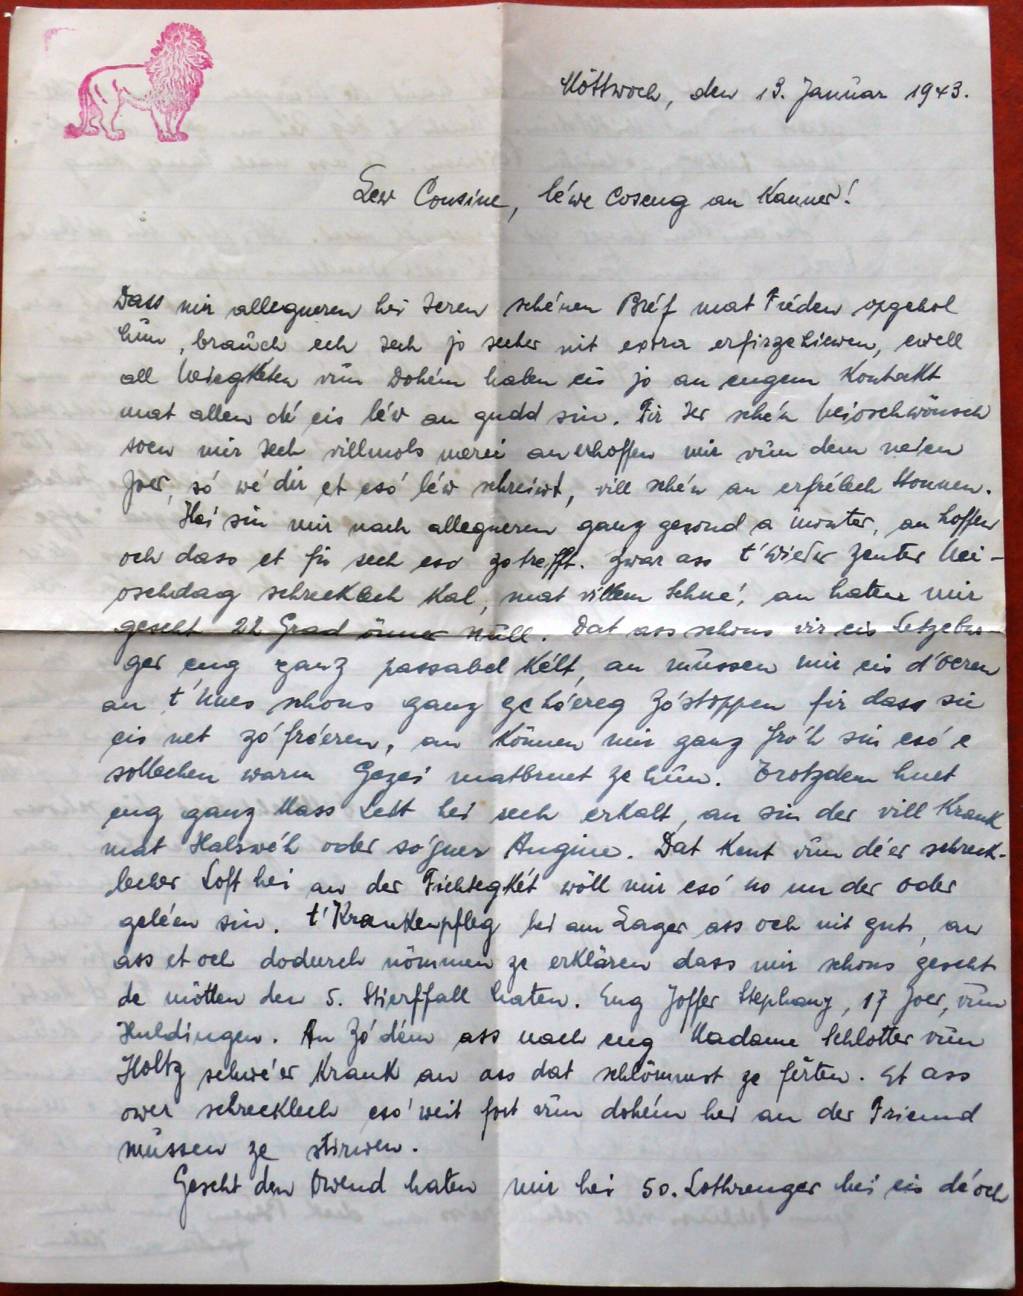 Möttwoch, den 13. Januar 1943.
Lew Cousine, léwe Coseng an Kanner!
Dass mir allegueren hei Ieren schénen Bréf mat Fréden opgeholl
hun, brauch ech Iech jo secher nit extra erfirzehiewen, ewell
all Wiegketen vun Dohém haben eis jo an engem Kontakt
mat allen dé eis léw an gudd sin. Fir Ier schén Neioschwönsch
soen mir Iech villmols merci an erhoffen mir vun dem neien
Joer, só wé dir et esó léw schreiwt, vill schén an erfrélech Stonnen.
Hei sin mir nach allegueren ganz gesond a monter, an hoffen
och dass et fir Iech eso zotrefft. Zwar ass t'Wieder zenter Nei-
oschdag schrecklech kal, mat villem Schné, an haten mir
gescht 22 Grad önner Null. Dat ass schons vir eis Letzebur-
ger eng ganz passabel Kélt, an mussen mir eis d'Oeren
an t'Nues schons ganz gehéereg zóstoppen fir dass sie
eis net zófréeren, an können mir ganz fróh sin esó e
sollechen warm Gezei matbruet ze hun. Trotzdem huet
eng ganz Mass Leit hei sech erkalt, an sin der vill krank
mat Halswéh oder sóguer Angine. Dat kent vun déer schreck-
lecher Loft hei an der Fichtegkét wöll mir esó no un der Oder
geléen sin. t'Krankenpfleg hei am Lager ass och nit gutt, an
ass et och dodurch nömmen ze erklären dass mir schons gescht
de mötten den 5. Stierffall haten. Eng Joffer Stephany, 17 Joer, vun
Huldingen. An zódém ass nach eng Madame Schlotter vun
Holtz schwéer krank an ass dat schlömmst ze ferten. Et ass
ower schrecklech esó weit fort vun dohém hei an der Friemd
mussen ze stierwen.
Gescht den Owend haten mir hei 50. Lothrenger bei eis dé och